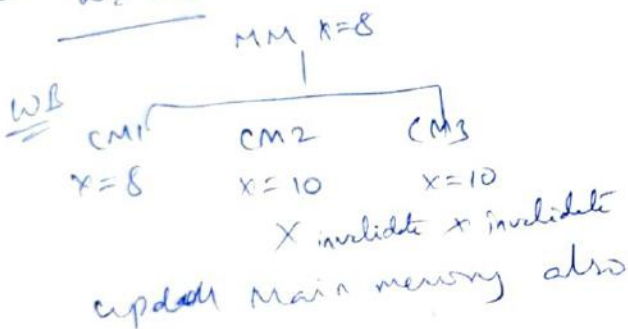 MM x=8
WB
CM1 CM2 CM3
x=8 x=10 x=10
X invalidate x invalidate
Main memory also